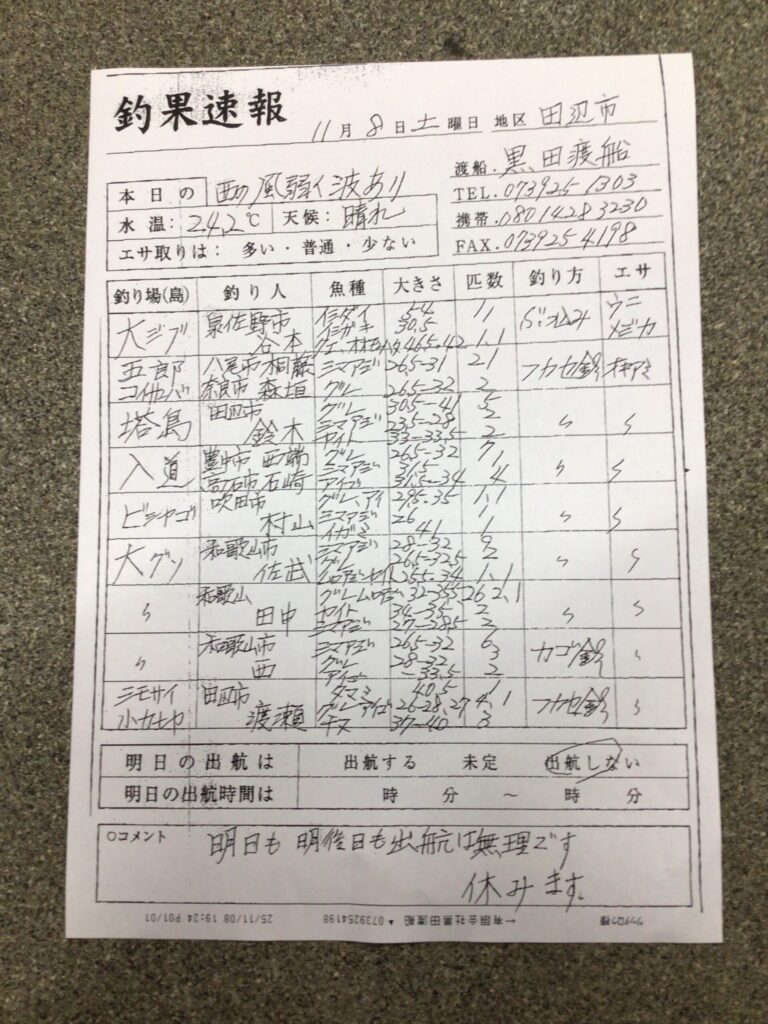 釣果速報
11月8日土曜日 地区 田辺市
渡船. 黒田渡船
TEL. 073925 1303
携帯. 080 1428 3230
FAX. 073925 4198
本日の 西の風弱く波あり
水温: 24,2℃ 天候: 晴れ
エサ取りは: 多い・普通・少ない
釣り場(島) 釣り人 魚種 大きさ 匹数 釣り方 エサ
大ジブ 泉佐野市 谷本 イシダイ 54 1 ウニ
イシガキ 30.5 1
46.5.42 1.1
五郎 八尾市 桐藤 シマアジ 26.5-31 21 フカセ釣 オキアミ
奈良市 森垣 グレ 26.5-32 2
塔島 田辺市 鈴木 グレ 30.5-41 5 〃 〃
シマアジ 23.5-28 2
33-33.5 2
入道 豊中市 西端 グレ 26.5-32 7 〃 〃
高石市 石崎 シマアジ 31.5 1
アイゴ 31.5-34 4
ビシャゴ 吹田市 村山 グレ、アイ 29.5.35 1.1 〃 〃
シマアジ 26 1
イガミ 41 1
大グソ 和歌山市 佐武 シマアジ 28-32 〃 〃
グレ 26.5-32.5 2
25.5-34 1、1
〃 和歌山 田中 グレ 32-35.5 26 2、1 〃 〃
34-35 2
シマアジ 27-28.5 2
〃 和歌山市 西 シマアジ 26.5-32 6 カゴ釣 〃
グレ 28-32 3
アイゴ -33.5 2
シモサイ 田辺市 渡瀬 タマミ 40.5 1 フカセ釣 〃
グレ アイゴ 26-28、27 4、1
チヌ 37-40 3
明日の出航は 出航する 未定 出航しない
明日の出航時間は 時 分 ~ 時 分
○コメント 明日も 明後日も出航は無理です
休みます。
25/11/08 19:24 P01/01 ▲ 0739254198 有限会社黒田渡船